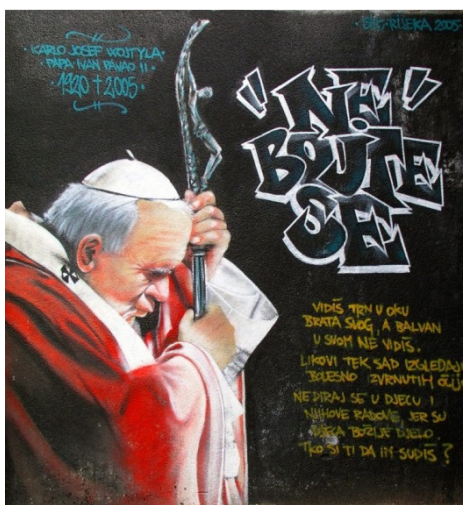 KARLO JOSEF WOJTYLA
PAPA IVAN PAVAO II
1920 † 2005
RIJEKA 2005
"NE"
BOJTE
SE
VIDIŠ TRN U OKU
BRATA SVOG, A BALVAN
U SVOM NE VIDIŠ.
LIKOVI TEK SAD IZGLEDAJU
BOLESNO ZVRNUTIH OČIJU
NE DIRAJ SE U DJECU I
NJIHOVE RADOVE JER SU
DJECA BOŽIJE DJELO
TKO SI TI DA IH SUDIŠ?